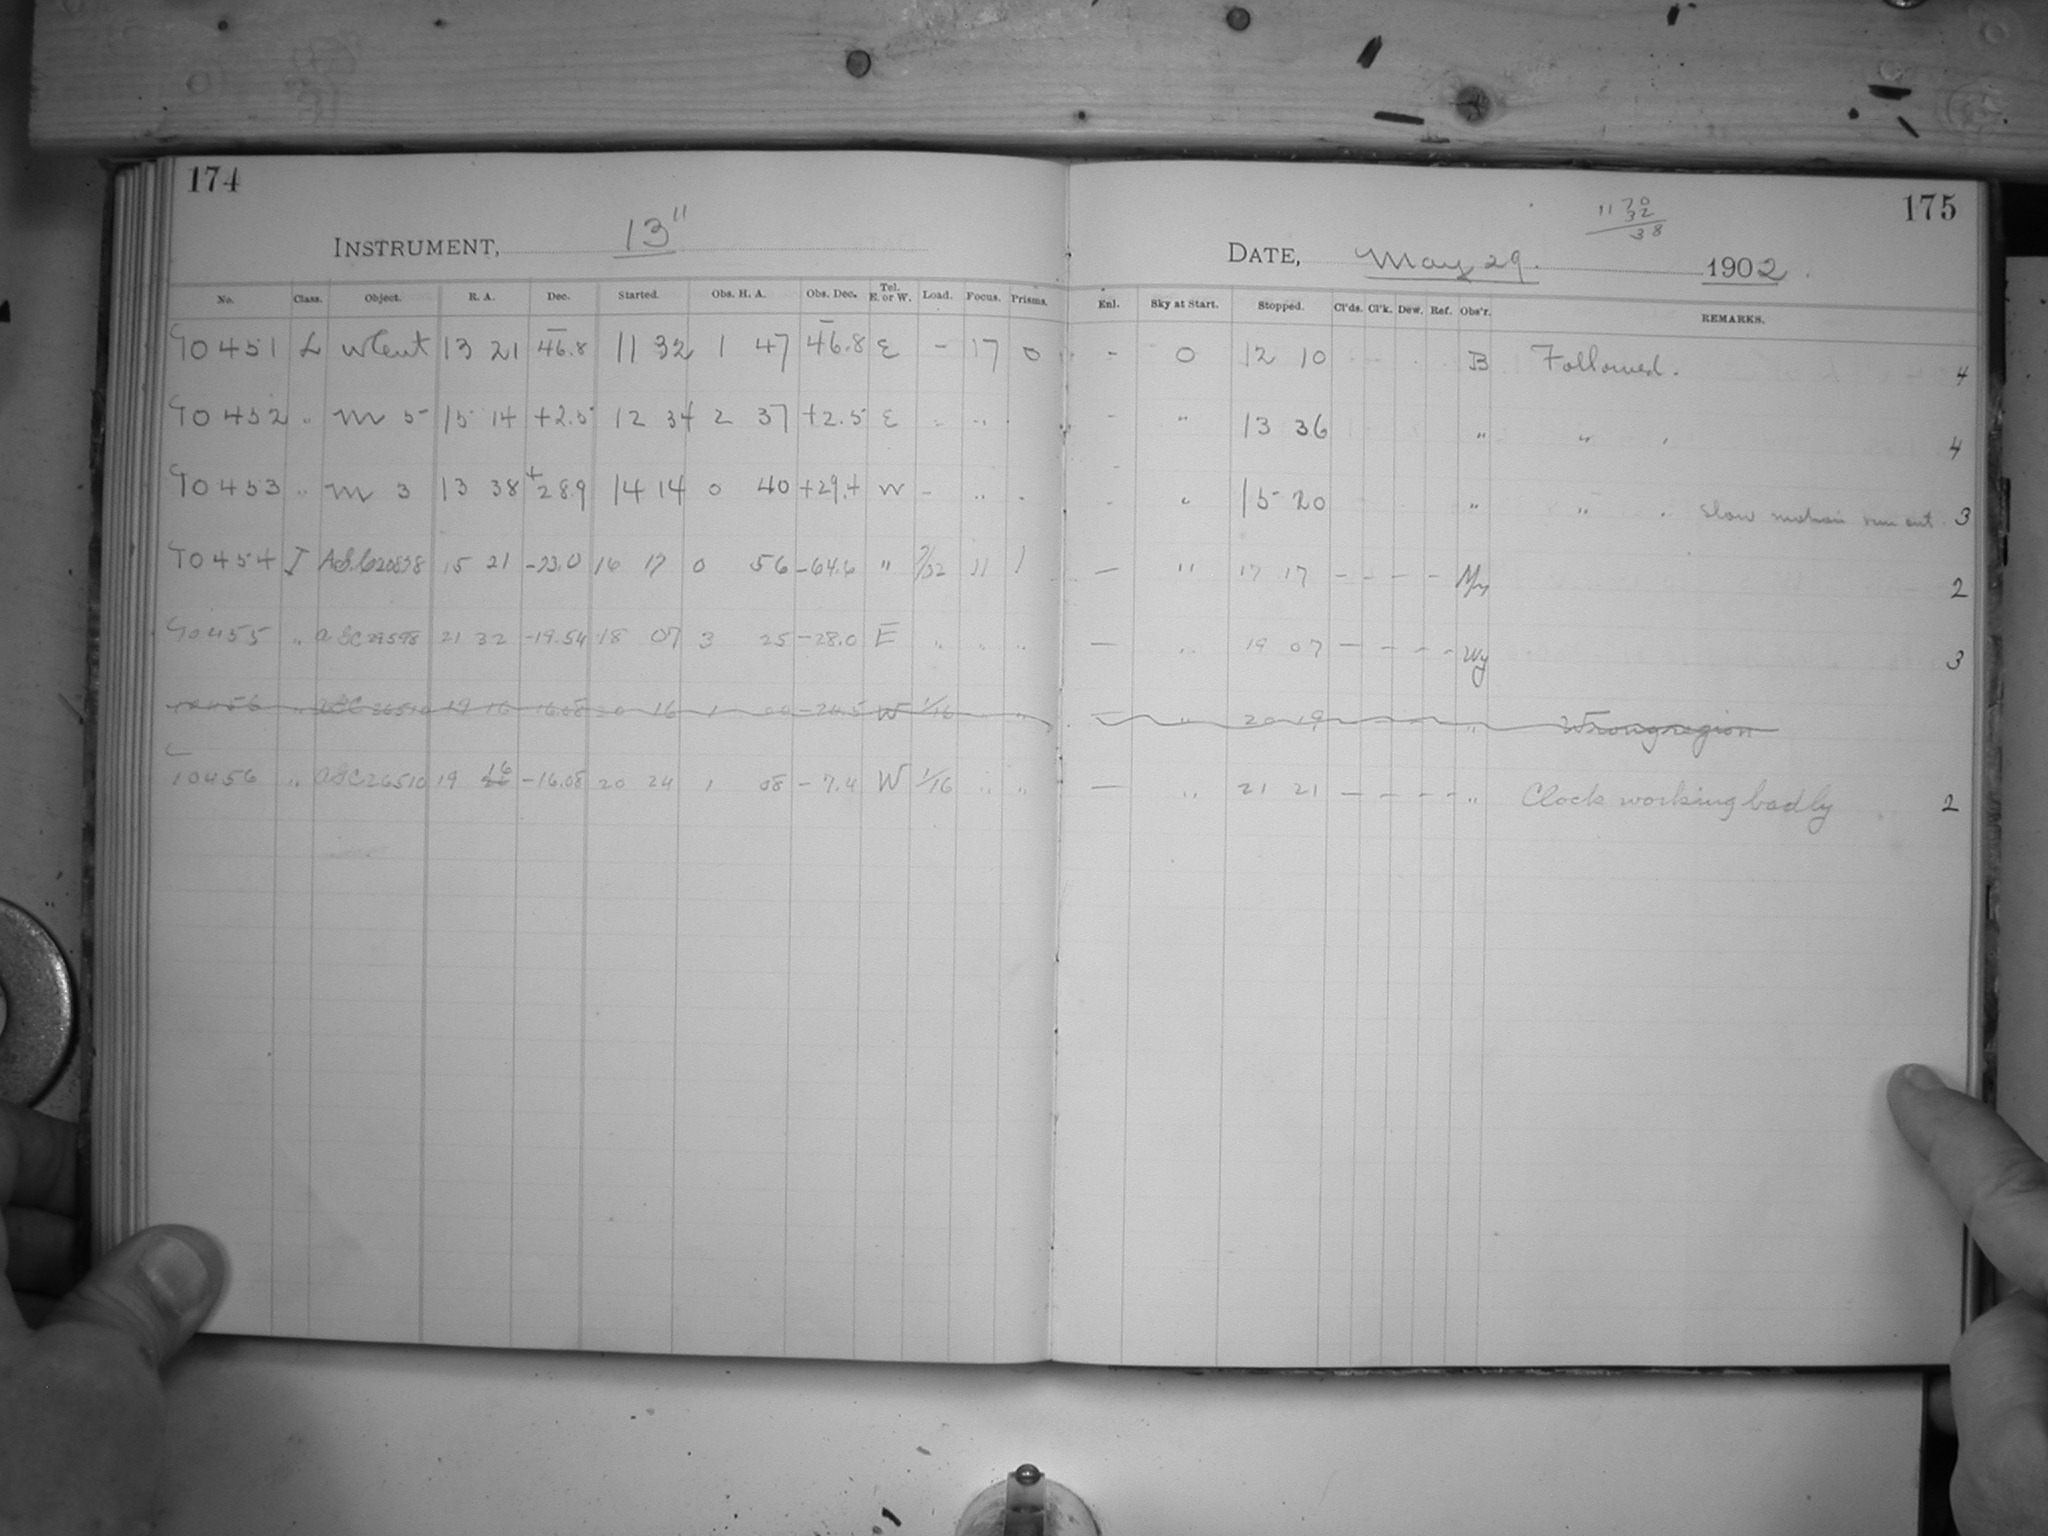 174
INSTRUMENT, 13"
No. Class. Object. R. A. Dec. Started. Obs. H. A. Obs. Dec. Tel. E. or W. Load. Focus. Prisms.
90451 L ωCent 13 21 -46.8 11 32 1 47 -46.8 E - 17 0
90452 " M 5 15 14 +2.5 12 34 2 37 +2.5 E " " .
90453 " M 3 13 38 +28.9 14 14 0 40 W - " .
90454 I 15 21 16 17 0 56 -64.6 " 7/32 11 1
90455 " AGC29598 21 32 -19.54 18 07 3 25 -28.0 E " " "
10456 " AGC26510 19 16 16.08 20 16 1 -24.5 W 1/16 " "
10456 " AGC26510 19 16 -16.08 20 24 1 08 -7.4 W 1/16 " "
175
11 70
32
38
DATE, May 29. 1902.
Enl. Sky at Start. Stopped. Cl'ds. Cl'k. Dew. Ref. Obs'r. REMARKS.
- 0 12 10 B Followed. 4
- " 13 36 " " . 4
- " 15 20 " " . Slow motion run out. 3
— " 17 17 - - - - 2
— " 19 07 - - - - Wy 3
— " 20 19 " Wrong region
— " 21 21 - - - - " Clock working badly 2